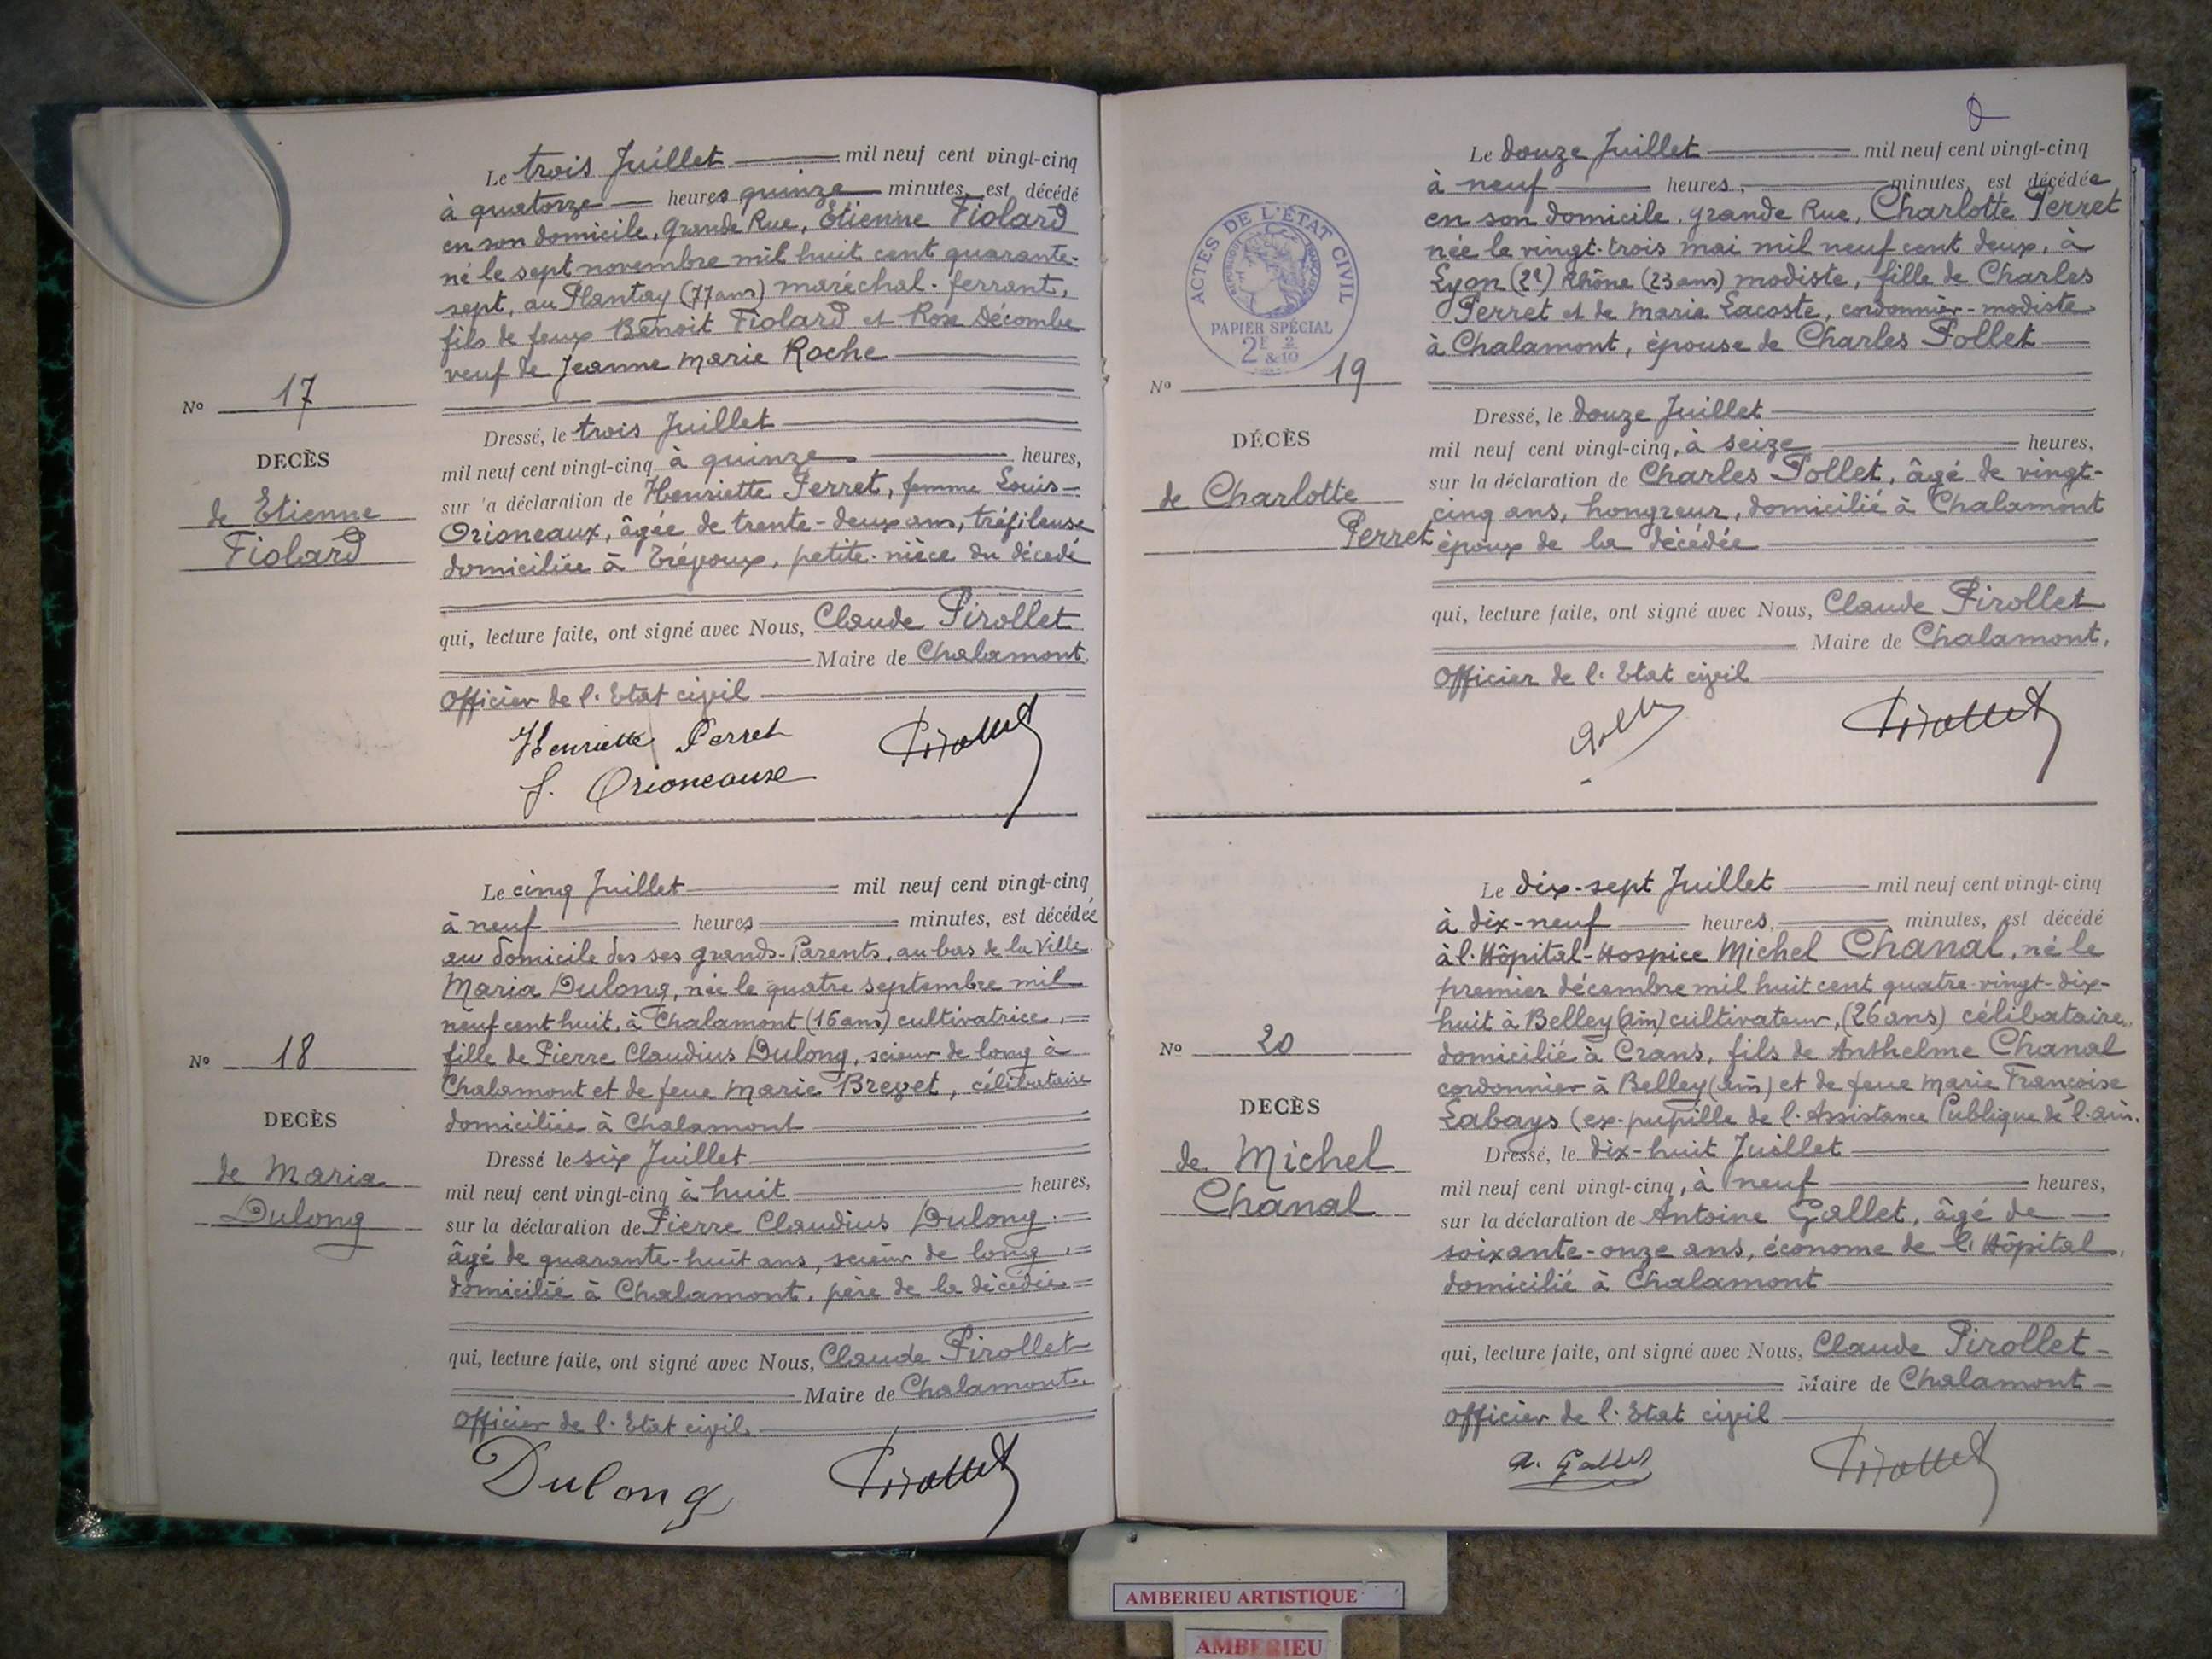 Le trois Juillet mil neuf cent vingt-cinq
à quatorze heures quinze minutes, est décédé
en son domicile, Grande Rue, Etienne Fiolard
né le sept novembre mil huit cent quarante-
sept, au Plantay (77 ans) maréchal-ferrant,
fils de feux Benoit Fiolard et Rose Décombe
veuf de Jeanne Marie Roche
No 17
DECÈS
de Etienne
Fiolard
Dressé, le trois Juillet
mil neuf cent vingt-cinq à quinze heures,
sur 'a déclaration de Henriette Perret, femme Louis
Orioneaux, âgée de trente-deux ans, tréfileuse
domiciliée à Trévoux, petite-nièce du décédé
qui, lecture faite, ont signé avec Nous, Claude Pirollet
Maire de Chalamont,
Officier de l'Etat civil
Henriette Perret
Pirollet
Orioneause
Le cinq Juillet mil neuf cent vingt-cinq
à neuf heures minutes, est décédée
au domicile des ses grands-Parents, au bas de la Ville
Maria Dulong, née le quatre septembre mil
neuf cent huit, à Chalamont (16 ans) cultivatrice,
fille de Pierre Claudius Dulong, scieur de long à
Chalamont et de feue Marie Brevet, célibataire
domiciliée à Chalamont
No 18
DECÈS
de Maria
Dulong
Dressé le six Juillet
mil neuf cent vingt-cinq à huit heures,
sur la déclaration de Pierre Claudius Dulong
âgé de quarante-huit ans, scieur de long,
domicilié à Chalamont, père de la décédée
qui, lecture faite, ont signé avec Nous, Claude Pirollet
Maire de Chalamont.
Officier de l'Etat civil
Dulong
Pirollet
Le douze Juillet mil neuf cent vingt-cinq
à neuf heures, minutes, est décédée
en son domicile, grande Rue, Charlotte Perret
née le vingt-trois mai mil neuf cent deux, à
Lyon (2e) Rhône (23 ans) modiste, fille de Charles
Perret et de Marie Lacoste, cordonnier-modiste
à Chalamont, épouse de Charles Pollet
ACTES DE L'ÉTAT CIVIL
RÉPUBLIQUE FRANÇAISE
PAPIER SPÉCIAL
2F 2
& 10
No 19
DÉCÈS
de Charlotte
Perret
Dressé, le douze Juillet
mil neuf cent vingt-cinq, à seize heures,
sur la déclaration de Charles Pollet, âgé de vingt-
cinq ans, hongreur, domicilié à Chalamont
époux de la décédée
qui, lecture faite, ont signé avec Nous, Claude Pirollet
Maire de Chalamont,
Officier de l'Etat civil
Pirollet
Le dix-sept Juillet mil neuf cent vingt-cinq
à dix-neuf heures, minutes, est décédé
à l'Hôpital-Hospice Michel Chanal, né le
premier décembre mil huit cent quatre-vingt-dix-
huit à Belley (Ain) cultivateur, (26 ans) célibataire,
domicilié à Crans, fils de Anthelme Chanal
cordonnier à Belley (Ain) et de feue Marie Françoise
Labays (ex-pupille de l'Assistance Publique de l'Ain.
No 20
DECÈS
de Michel
Chanal
Dressé, le dix-huit Juillet
mil neuf cent vingt-cinq, à neuf heures,
sur la déclaration de Antoine Gallet, âgé de
soixante-onze ans, économe de l'Hôpital,
domicilié à Chalamont
qui, lecture faite, ont signé avec Nous, Claude Pirollet
Maire de Chalamont
Officier de l'Etat civil
A. Gallet
Pirollet
AMBERIEU ARTISTIQUE
AMBERIEU